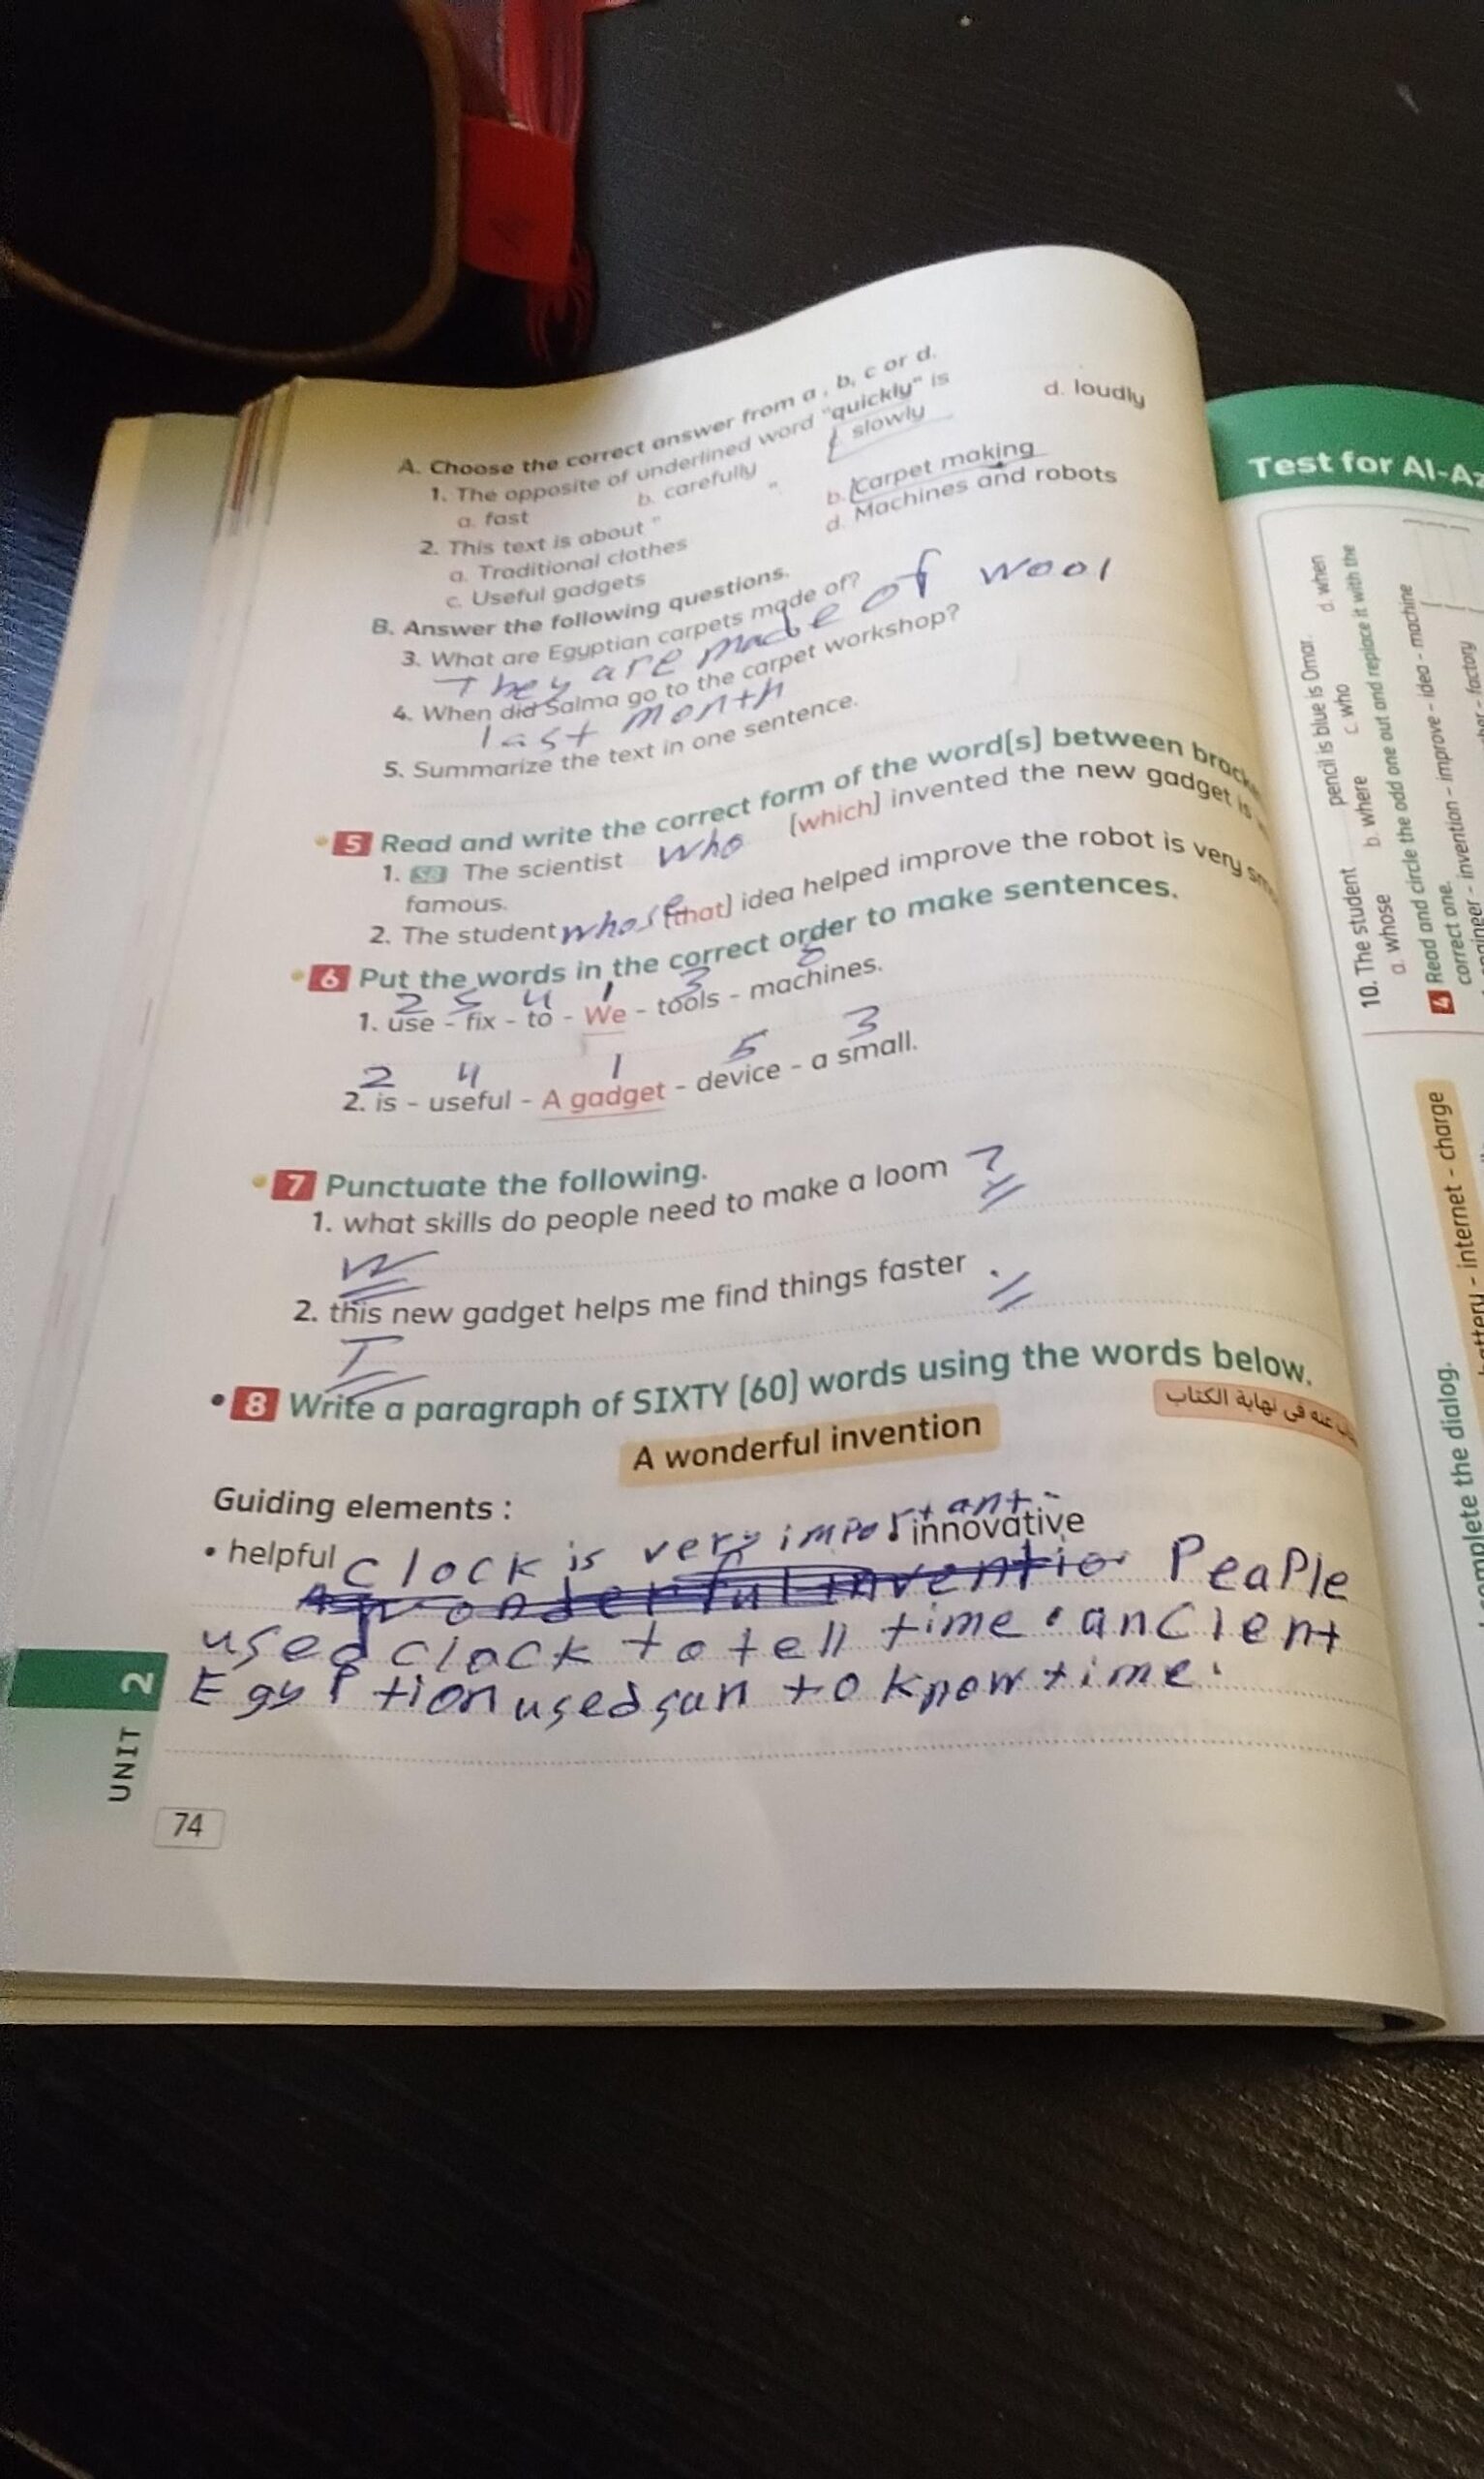 A. Choose the correct answer from a , b, c or d.
1. The opposite of underlined word "quickly" is
a. fast b. carefully slowly d. loudly
2. This text is about "
a. Traditional clothes b. Carpet making
c. Useful gadgets d. Machines and robots
B. Answer the following questions.
3. What are Egyptian carpets made of?
They are made of wool
4. When did Salma go to the carpet workshop?
last month
5. Summarize the text in one sentence.
5 Read and write the correct form of the word(s) between
1. SB The scientist who (which) invented the new gadget is
famous.
2. The student whose (that) idea helped improve the robot is very
6 Put the words in the correct order to make sentences.
2 5 4 1 3
1. use - fix - to - We - tools - machines.
2 4 1 5 3
2. is - useful - A gadget - device - a small.
7 Punctuate the following.
1. what skills do people need to make a loom ?
W
2. this new gadget helps me find things faster .
T
8 Write a paragraph of SIXTY (60) words using the words below.
عنه فى نهاية الكتاب
A wonderful invention
Guiding elements :
• helpful innovative
clock is very important.
Peaple
used clock to tell time . ancient
Egyption used sun to know time.
UNIT 2
74
Test for Al-Az
10. The student pencil is blue is Omar.
a. whose b. where c. who d. when
4 Read and circle the odd one out and replace it with the
correct one.
invention - improve - idea - machine
factory
internet - charge
complete the dialog.